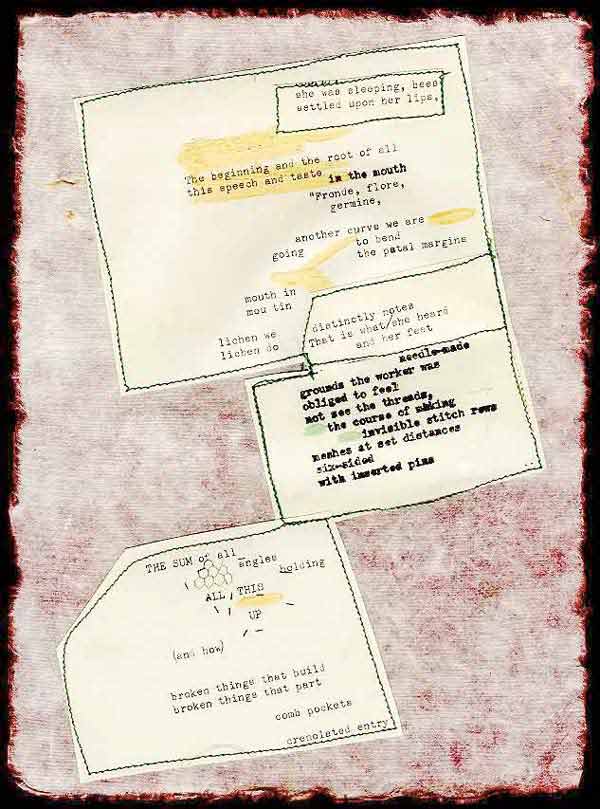 she was sleeping, bees
settled upon her lips,
The beginning and the root of all
this speech and taste in the mouth
"Fronde, flore,
germine,
another curve we are
going to bend
the petal margins
mouth in
mou tin
lichen we
lichen do
distinctly notes
That is what/she heard
and her feet
needle-made
grounds the worker was
obliged to feel
not see the threads,
the course of making
invisible stitch rows
meshes at set distances
six-sided
with inserted pins
THE SUM of all angles
holding
ALL THIS
UP
(and how)
broken things that build
broken things that part
comb pockets
crenolated entry